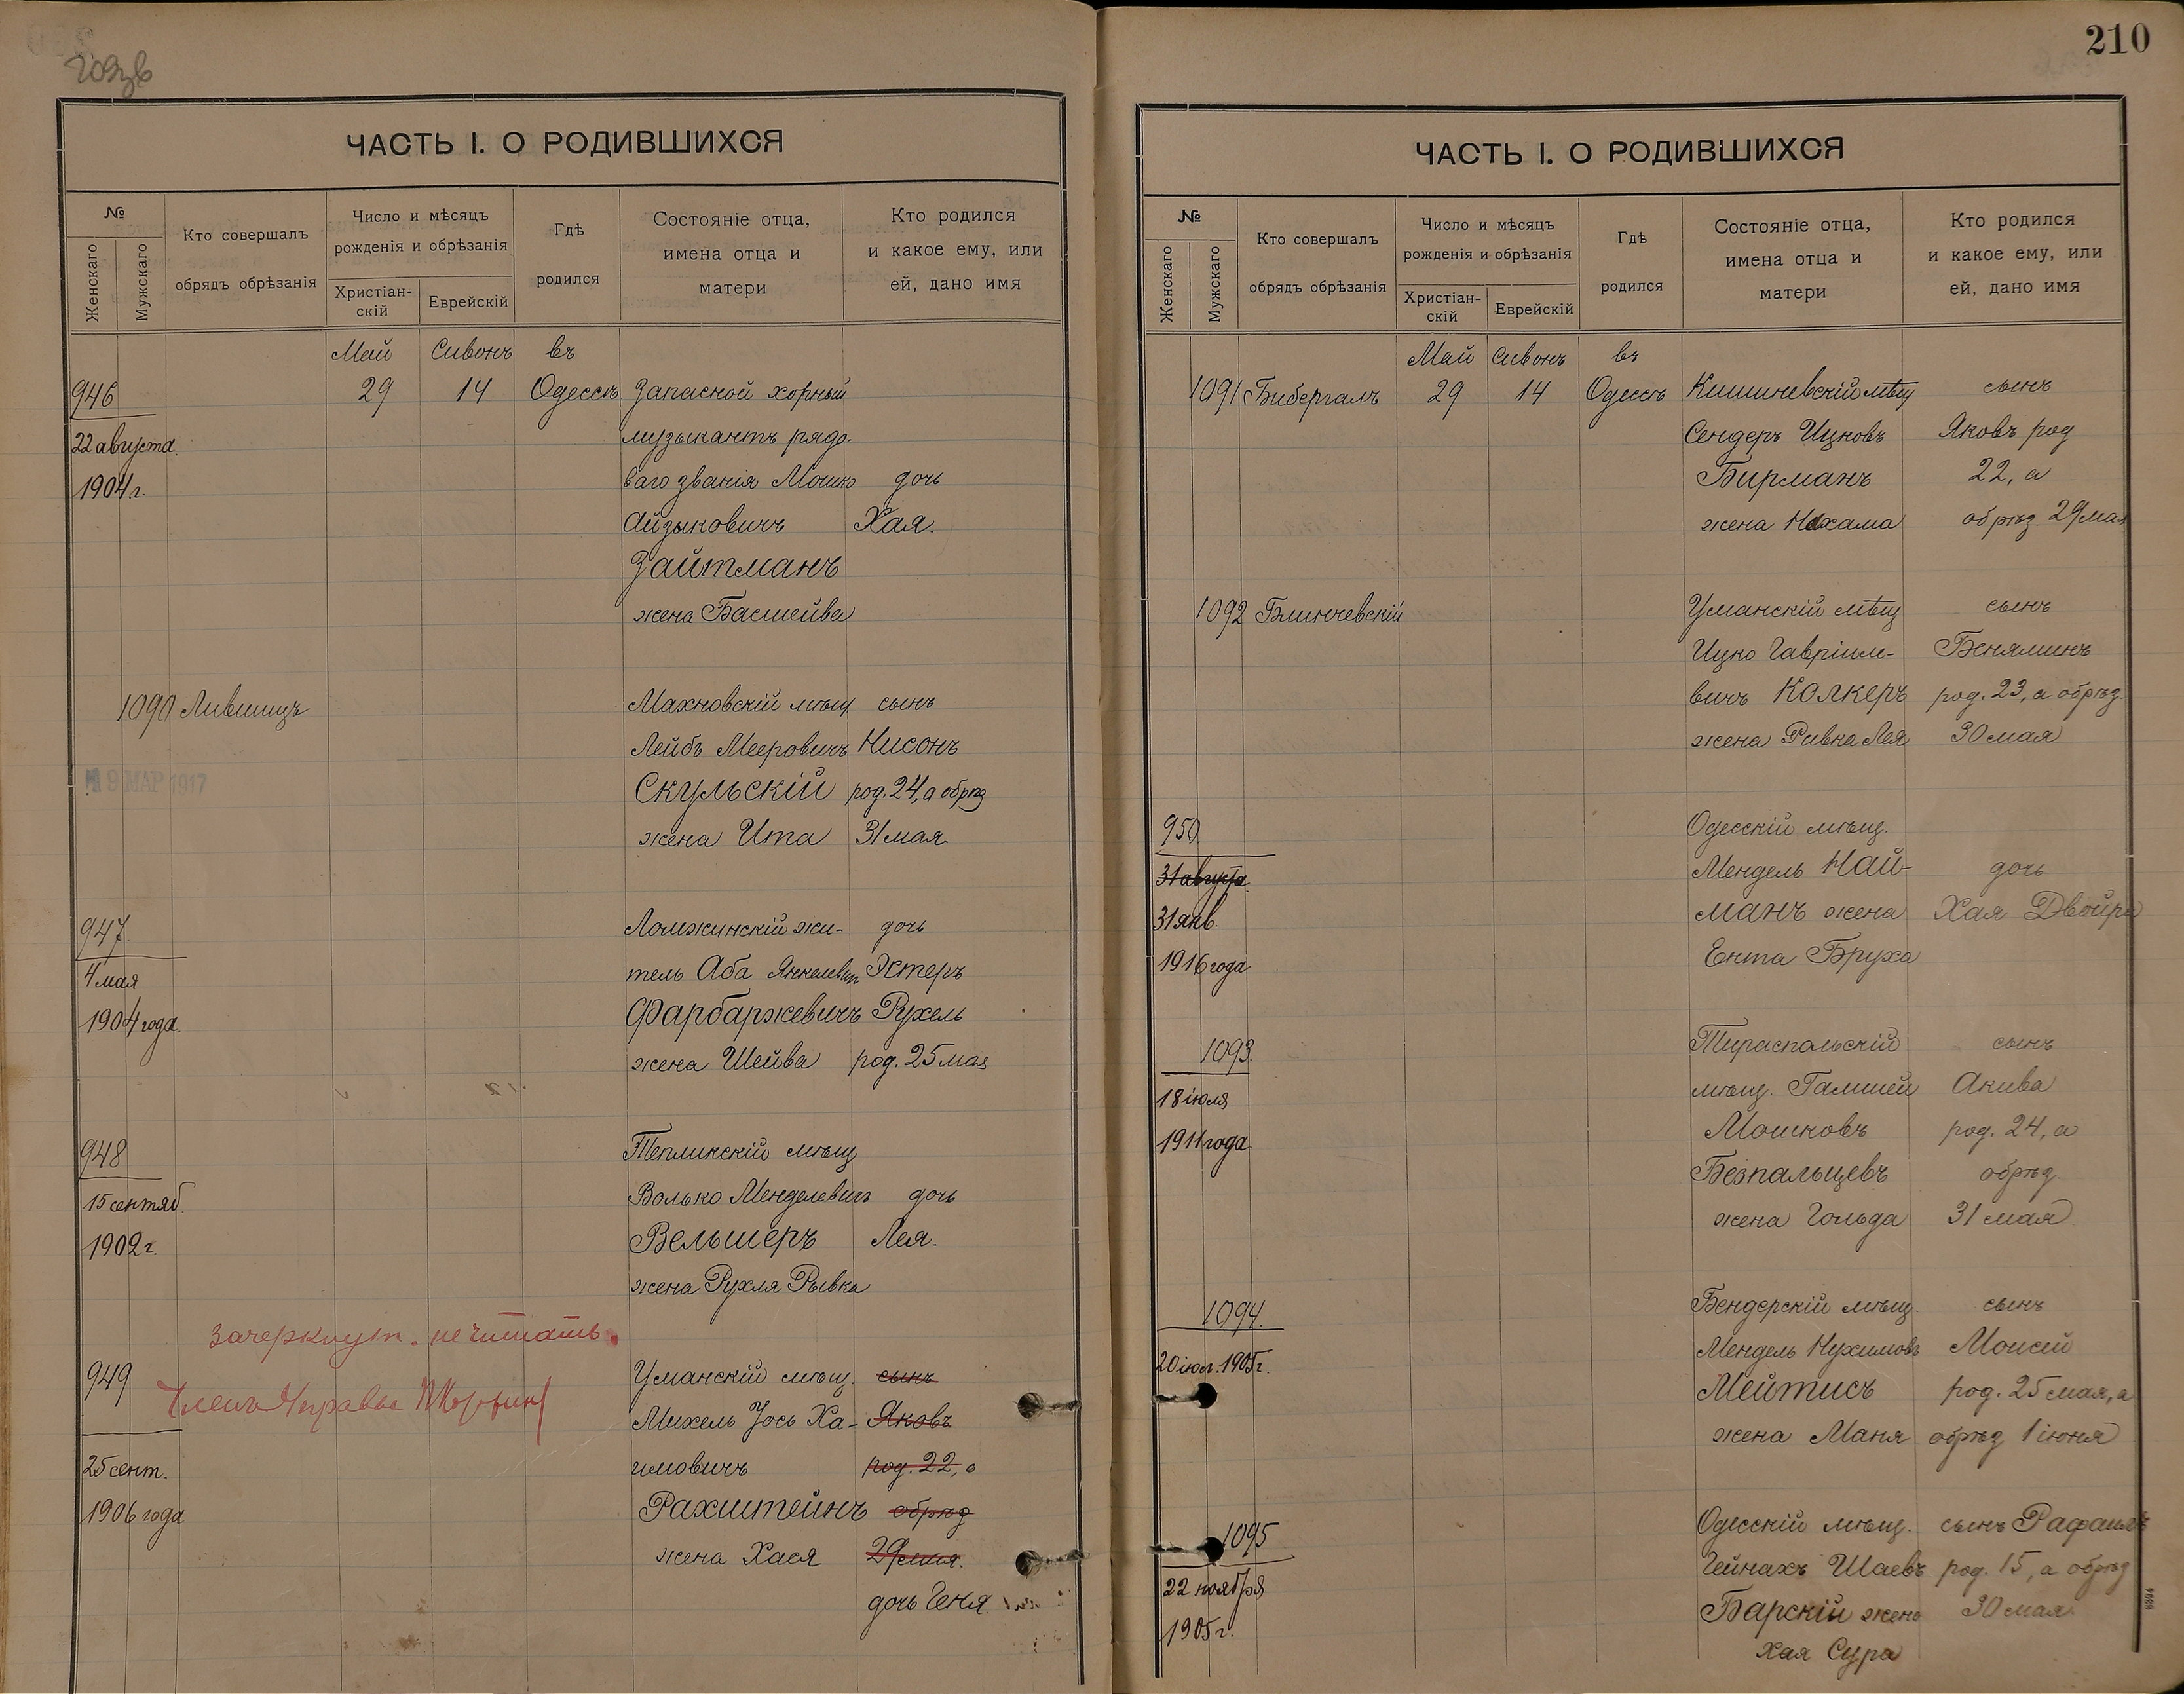 209 зв
ЧАСТЬ I. О РОДИВШИХСЯ
№
Женскаго
Мужскаго
Кто совершалъ
обрядъ обрѣзанія
Число и мѣсяцъ
рожденія и обрѣзанія
Христіан-
скій
Еврейскій
Гдѣ
родился
Состояніе отца,
имена отца и
матери
Кто родился
и какое ему, или
ей, дано имя
Май Сивонъ въ
946 29 14 Одессѣ Запасной хорный
22 августа музыкантъ рядо-
1904 г. ваго званія Мошко дочь
Айзыковичъ Хая.
Зайтманъ
жена Басшейва
1090 Лившицъ Махновскій мѣщ сынъ
Лейбъ Мееровичъ Нисонъ
9 МАР 1917 Скульскій род. 24, а обрѣз
жена Ита 31 мая
947 Ломжинскій жи- дочь
4 мая тель Аба Янкелевич Эстеръ
1904 года Фарбаржевичъ Рухель
жена Шейва род. 25 мая
948 Тепликскій мѣщ
15 сентяб. Волько Менделевичъ дочь
1902 г. Вельшеръ Лея.
жена Рухля Рывка
Зачеркнут. не читать.
949 Уманскій мѣщ. сынъ
Членъ Управы
Михель Іось Ха- Яковъ
25 сент. имовичъ род. 22, а
1906 года Рахштейнъ обрѣз
жена Хася 29 мая.
дочь Геня
210
ЧАСТЬ I. О РОДИВШИХСЯ
№
Женскаго
Мужскаго
Кто совершалъ
обрядъ обрѣзанія
Число и мѣсяцъ
рожденія и обрѣзанія
Христіан-
скій
Еврейскій
Гдѣ
родился
Состояніе отца,
имена отца и
матери
Кто родился
и какое ему, или
ей, дано имя
Май Сивонъ въ
1091 Бибергалъ 29 14 Одессѣ Кишиневскій мѣщ сынъ
Сендеръ Ицковъ Яковъ род
Бирманъ 22, а
жена Нехама обрѣз 29 мая
1092 Блинчевскій Уманскій мѣщ сынъ
Ицко Гавріиле- Беняминъ
вичъ Колкеръ род. 23, а обрѣз.
жена Ривка Лея 30 мая
950 Одесскій мѣщ.
31 августа Мендель Най- дочь
31 янв. манъ жена Хая Двойра
1916 года Ента Бруха
1093 Тираспольскій сынъ
18 іюля мѣщ. Гамшей Акива
1911 года Мошковъ род. 24, а
Безпальцевъ обрѣз.
жена Гольда 31 мая
1094 Бендерскій мѣщ. сынъ
20 іюл. 1905 г. Мендель Нухимовъ Моисей
Мейтисъ род. 25 мая, а
жена Маня обрѣз 1 іюня
1095 Одесскій мѣщ. сынъ Рафаилъ
22 ноября Гейнахъ Шаевъ род. 15, а обрѣз
1905 г. Барскій жена 30 мая
Хая Сура